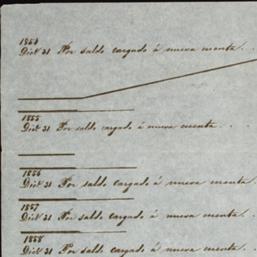 1854
Dic.e 31 Por saldo cargado á nueva cuenta . .
1855
Dic.e 31 Por saldo cargado á nueva cuenta . .
1856
Dic.e 31 Por saldo cargado á nueva cuenta .
1857
Dic.e 31 Por saldo cargado á nueva cuenta .
1858
Dic.e 31 Por saldo cargado á nueva cuenta . .